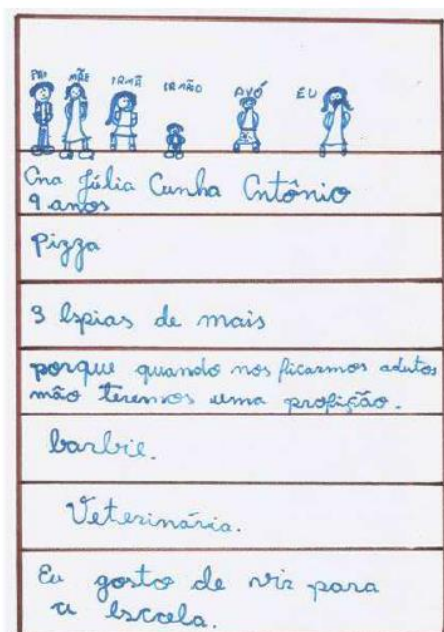 PAI MÃE IRMÃ IRMÃO AVÓ EU
Ana Júlia Cunha Antônio
9 anos
Pizza
3 Espias de mais
porque quando nos ficarmos adutos
não teremos uma profição.
barbie.
Veterinária.
Eu gosto de vir para
a escola.